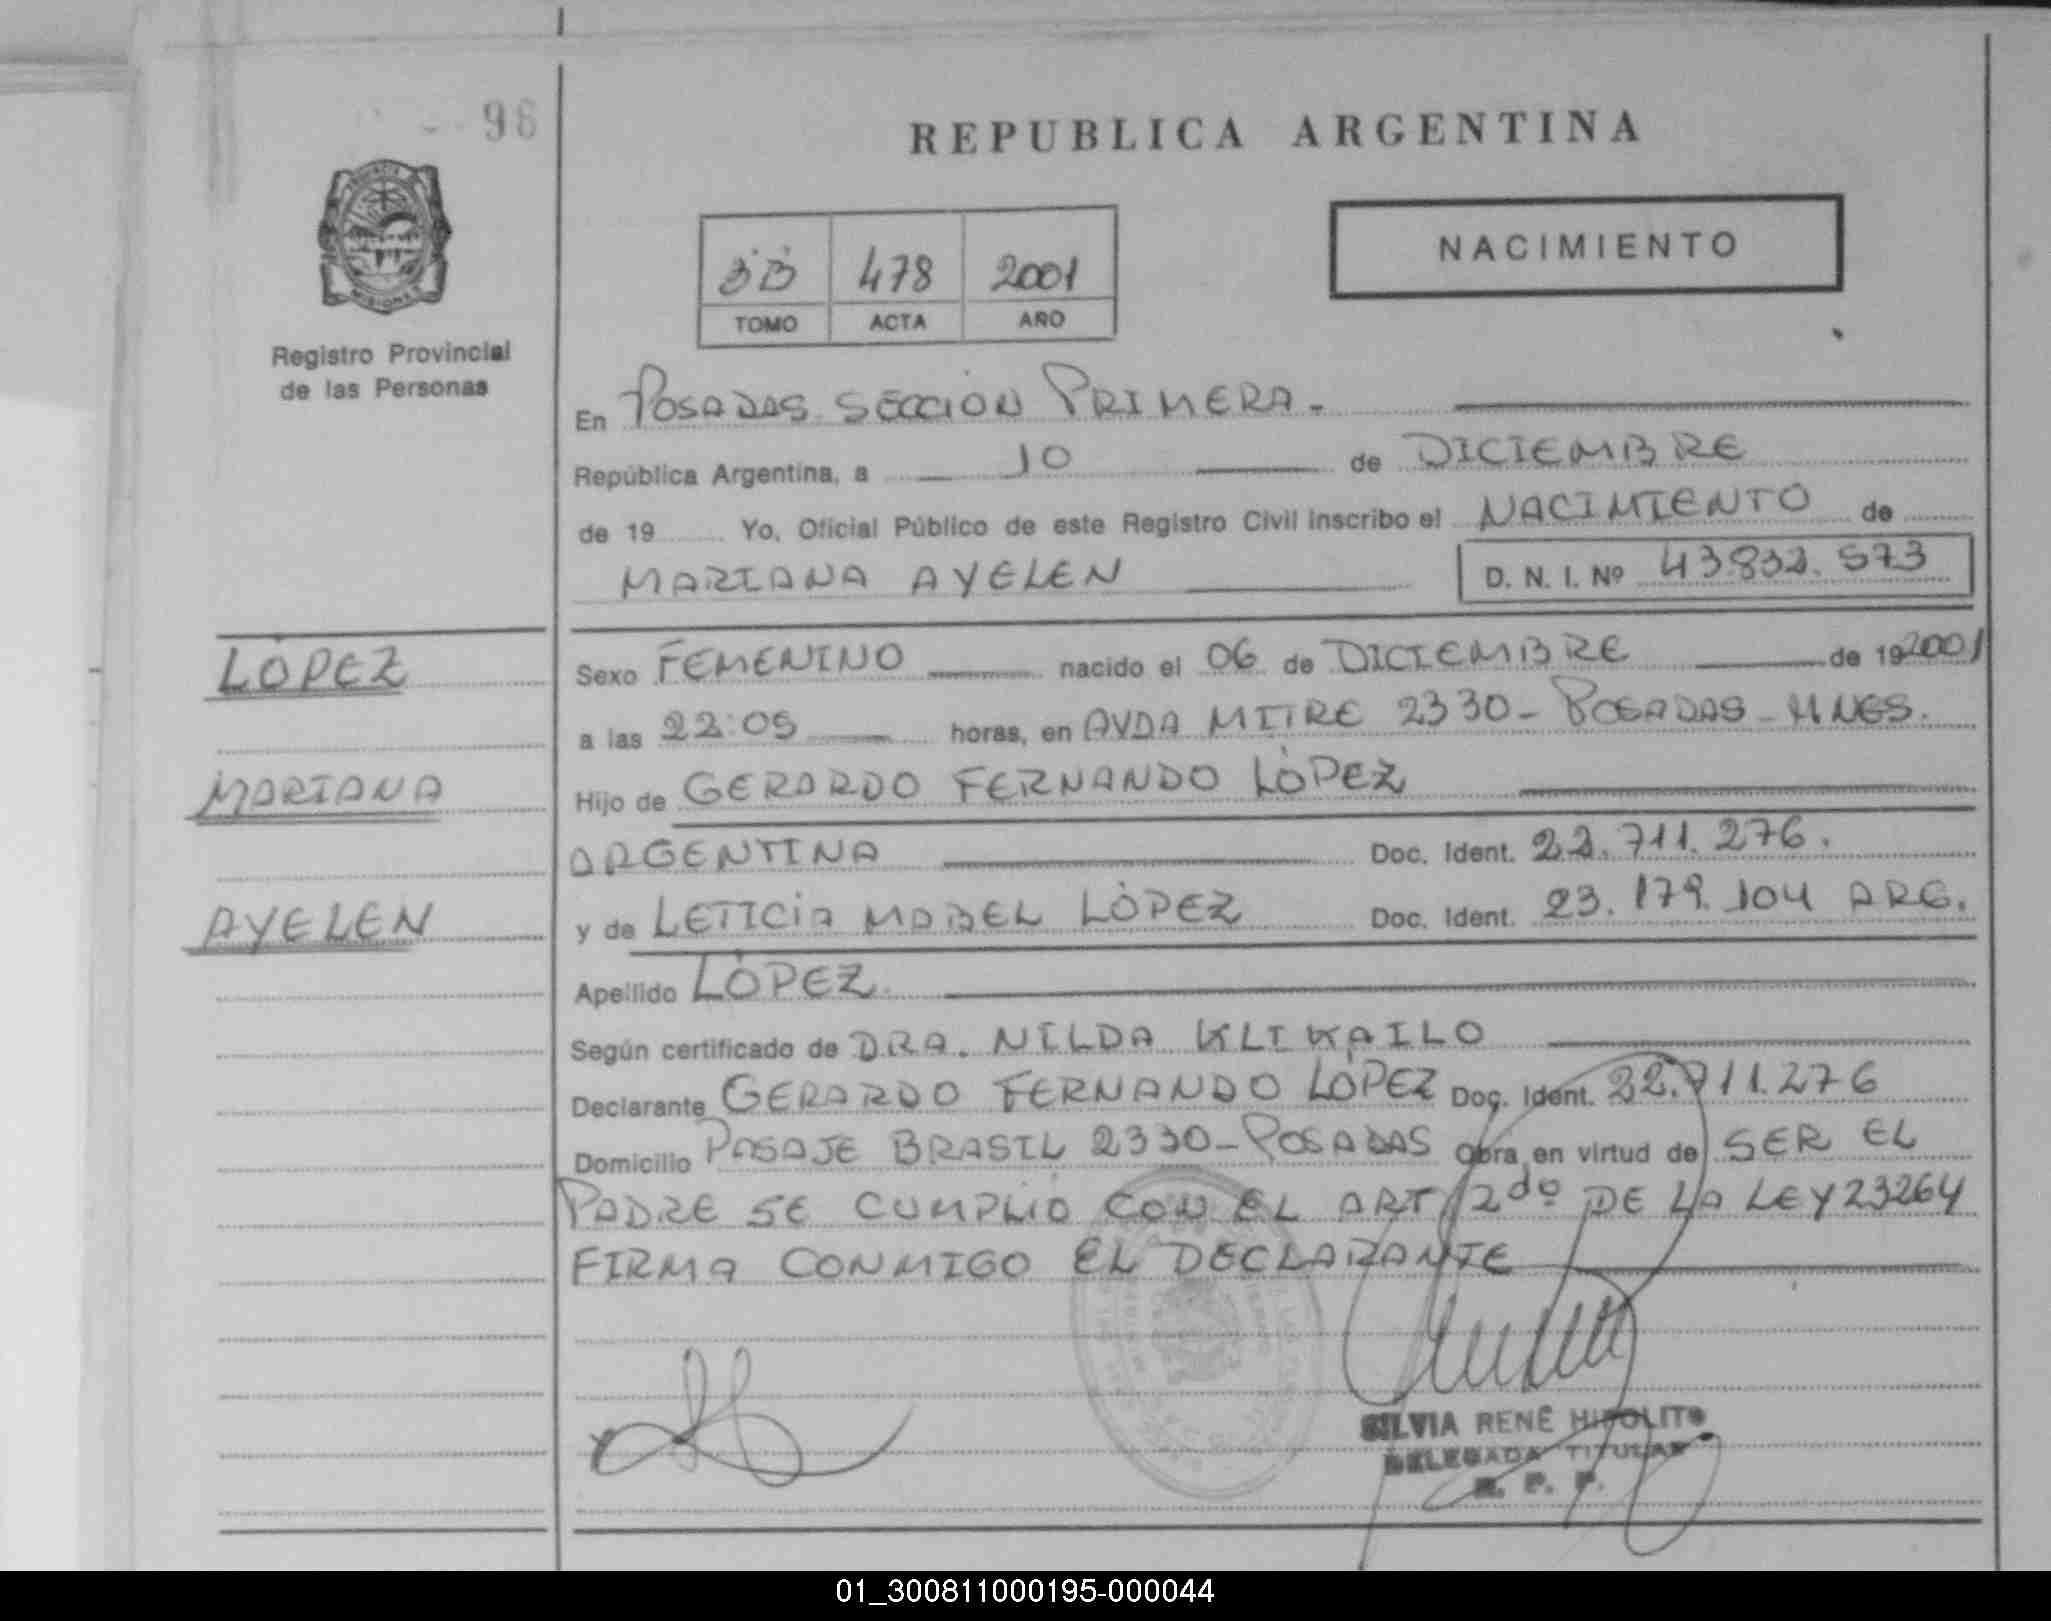 96
REPUBLICA ARGENTINA
478 2001
TOMO ACTA AÑO
NACIMIENTO
Registro Provincial
de las Personas
En POSADAS SECCION PRIMERA.
República Argentina, a 10 de DICIEMBRE
de 19 Yo, Oficial Público de este Registro Civil inscribo el NACIMIENTO de
MARIANA AYELEN D. N. I. Nº 43.832.573
LÓPEZ
MARIANA
AYELEN
Sexo FEMENINO nacido el 06 de DICIEMBRE de 19 2001
a las 22:05 horas, en AVDA MITRE 2330 - POSADAS - MNES.
Hijo de GERARDO FERNANDO LÓPEZ
ARGENTINA Doc. Ident. 22.711.276.
y de LETICIA MABEL LÓPEZ Doc. Ident. 23.179.104 ARG.
Apellido LÓPEZ.
Según certificado de DRA. NILDA KLIKAILO
Declarante GERARDO FERNANDO LÓPEZ Doc. Ident. 22.711.276
Domicilio PASAJE BRASIL 2330 - POSADAS Obra en virtud de SER EL
PADRE SE CUMPLIÓ CON EL ART 2do DE LA LEY 23264
FIRMA CONMIGO EL DECLARANTE
SILVIA RENÉ HIPOLITO
DELEGADA TITULAR
R. P. P.
01_300811000195-000044